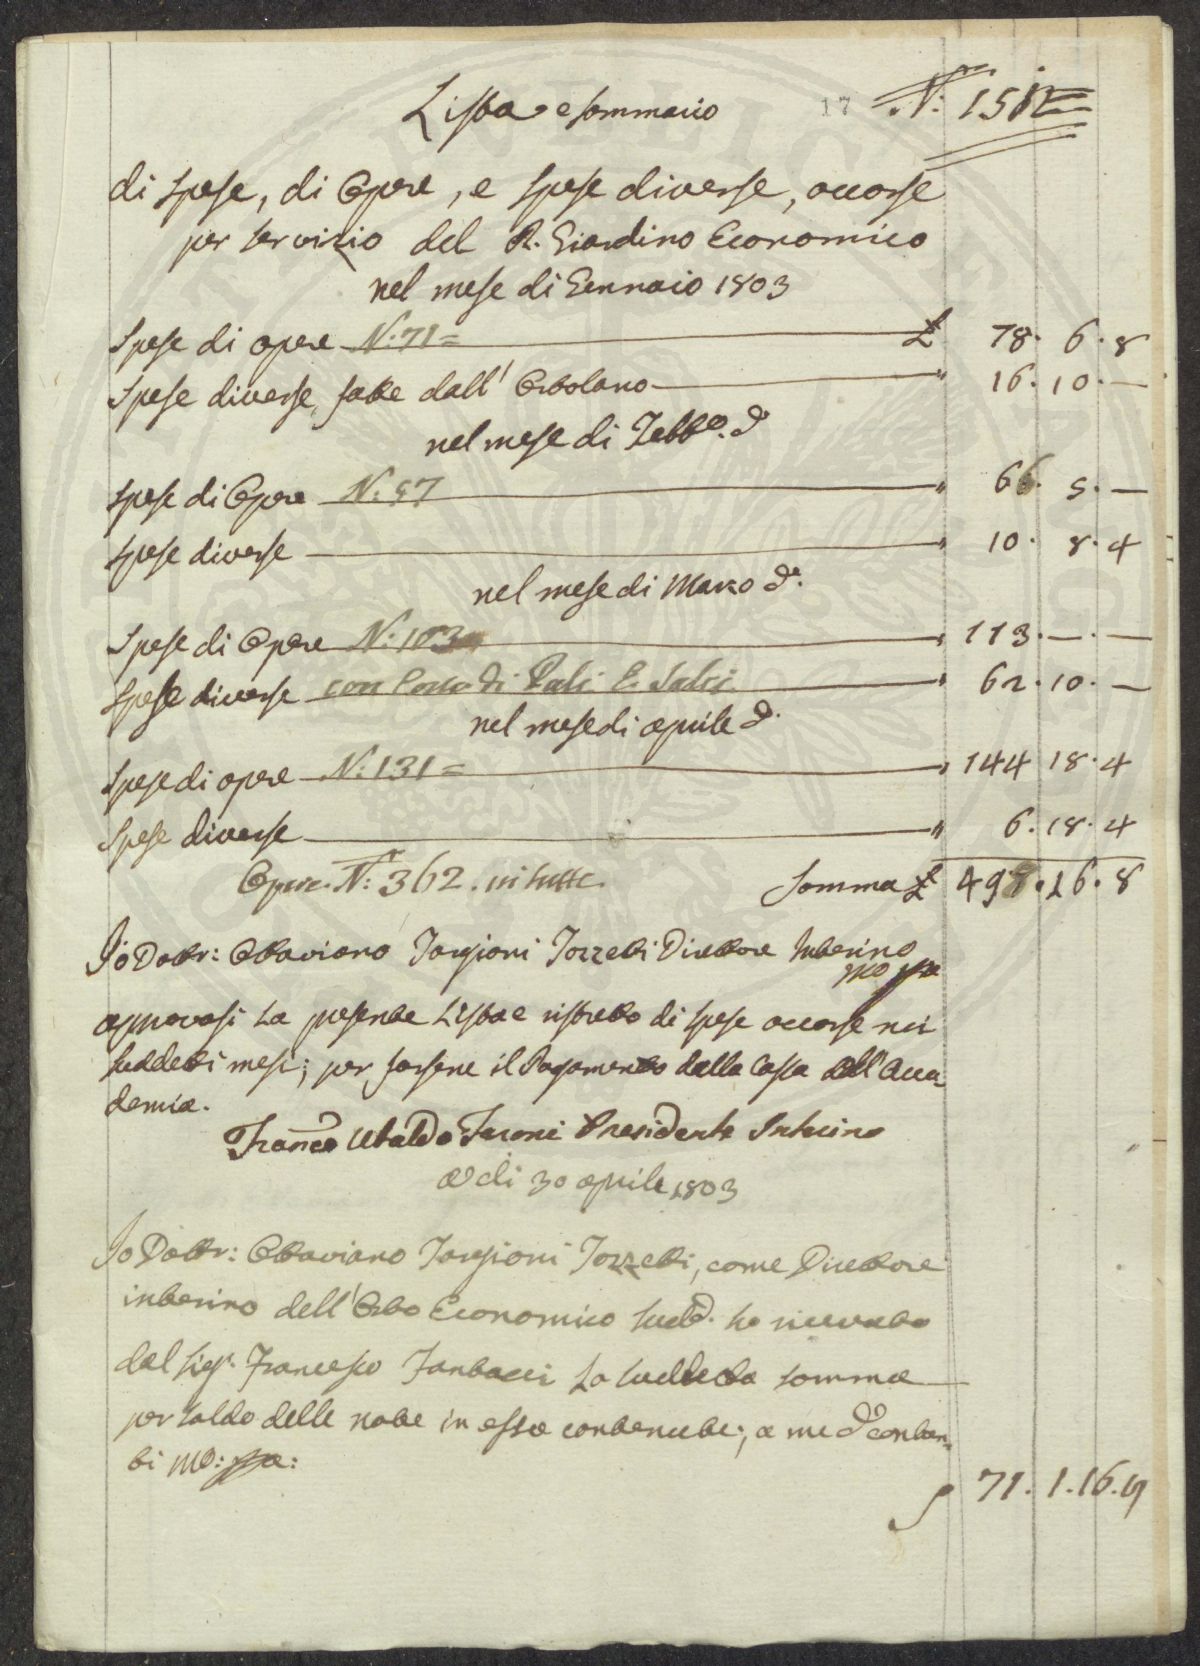 Lista e sommario
17 N: 15
di spese, di Opere, e spese diverse, occorse
per servizio del R. Giardino Economico
nel mese di Gennaio 1803
Spese di opere N: 71 = £ 78. 6. 8
Spese diverse, fatte dall' Ortolano " 16. 10. —
nel mese di Febbo. do
Spese di Opere N: 57 " 66. 5. —
Spese diverse " 10. 8. 4
nel mese di Marzo do.
Spese di Opere N: 103 " 113. —. —
Spese diverse con Costo di Pali E Salci " 62. 10. —
nel mese di aprile do.
Spese di opere N: 131 = " 144 18. 4
Spese diverse " 6. 18. 4
Opere. N: 362. in tutte. Somma £ 498. 16. 8
Io Dottr: Ottaviano Targioni Tozzetti Direttore Interino
mo ppa
approvasi la presente Lista e ristretto di spese occorse nei
suddetti mesi; per farsene il Pagamento dalla Cassa dell'Acca
demia.
Franco Ubaldo Feroni Presidente Interino
a di 30 aprile 1803
Io Dottr: Ottaviano Targioni Tozzetti, come Direttore
interino dell'Orto Economico sudd. ho ricevuto
dal Sigr. Francesco Tartacci la suddetta somma
per saldo delle note in essa contenute; a me do contan
ti mo: ppa:
71. 1. 16. 8